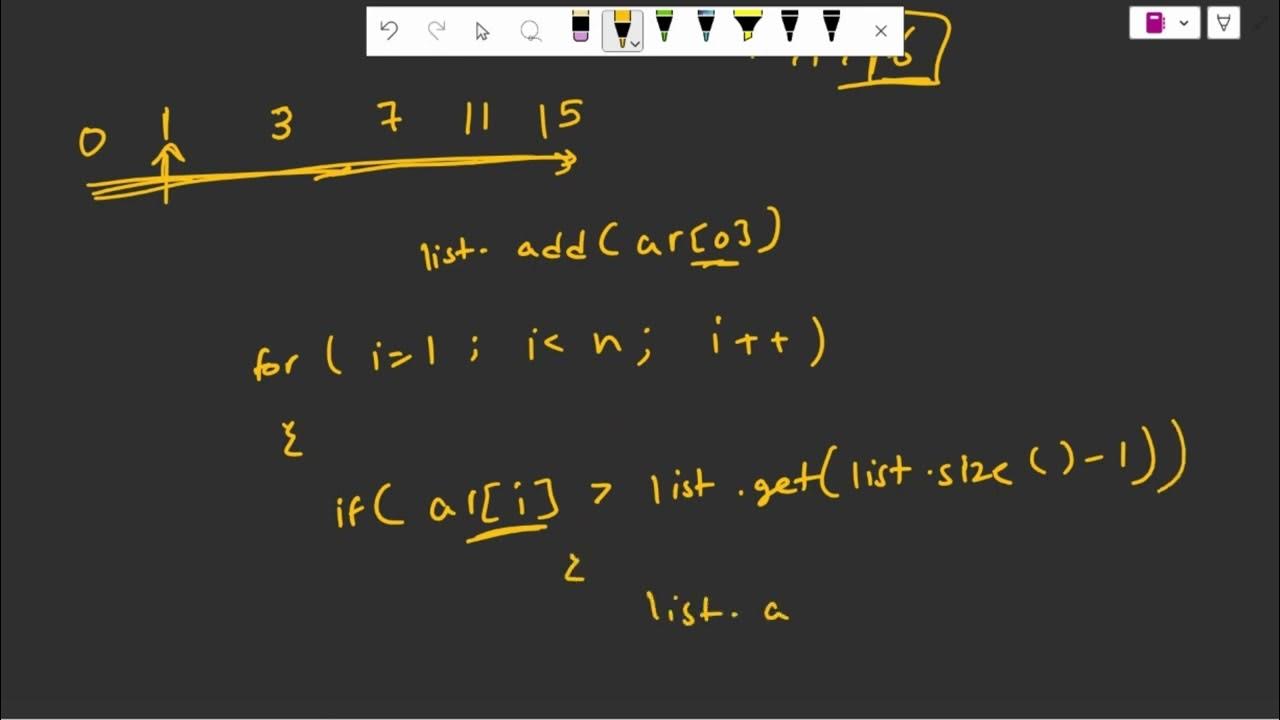 6
0 1 3 7 11 15
list. add(ar[0])
for ( i=1 ; i< n; i++)
{
if( ar[i] > list .get(list .size ()-1))
{
list. a